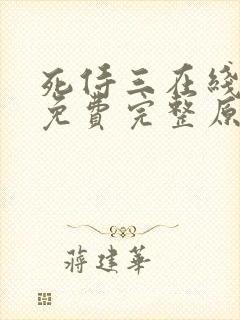 死侍三在线
免費完整原
蔣建華